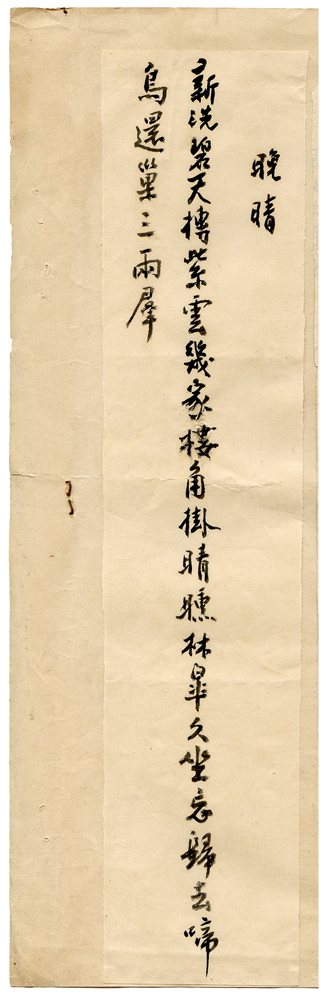 晚晴
新洗碧天摶紫雲幾家樓角掛晴曛林皋久坐忘歸去啼
鳥還巢三兩羣